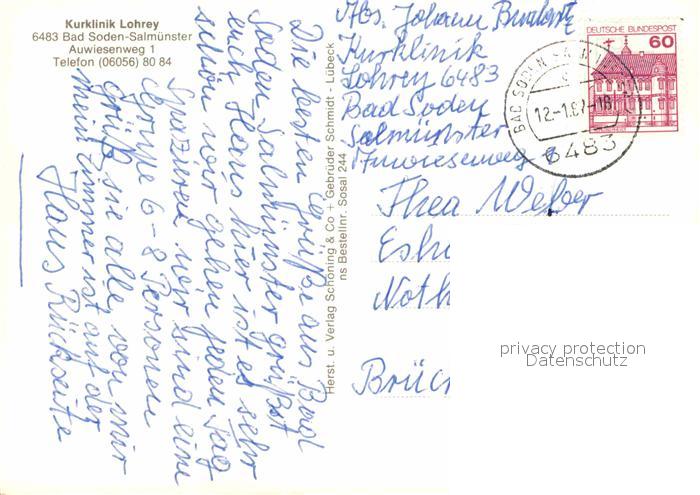 Kurklinik Lohrey
6483 Bad Soden-Salmünster
Auwiesenweg 1
Telefon (06056) 80 84
Die besten Grüße aus Bad
Soden Salmünster grüßt
euch Hans hier ist es sehr
schön wir gehen jeden Tag
Spazieren wir sind eine
Gruppe 6-8 Personen
Grüß sie alle von mir
mein Zimmer ist auf der
Haus Rückseite
Herst. u. Verlag Schöning & Co + Gebrüder Schmidt - Lübeck
ns Bestellnr. Sosal 244
Abs. Johann
Kurklinik
Lohrey 6483
Bad Soden
Salmünster
Auwiesenweg 1
DEUTSCHE BUNDESPOST
60
BAD SODEN-SALMÜNSTER
12-1.87-18
6483
Thea Weber
Esh
Noth
Brüc
privacy protection
Datenschutz